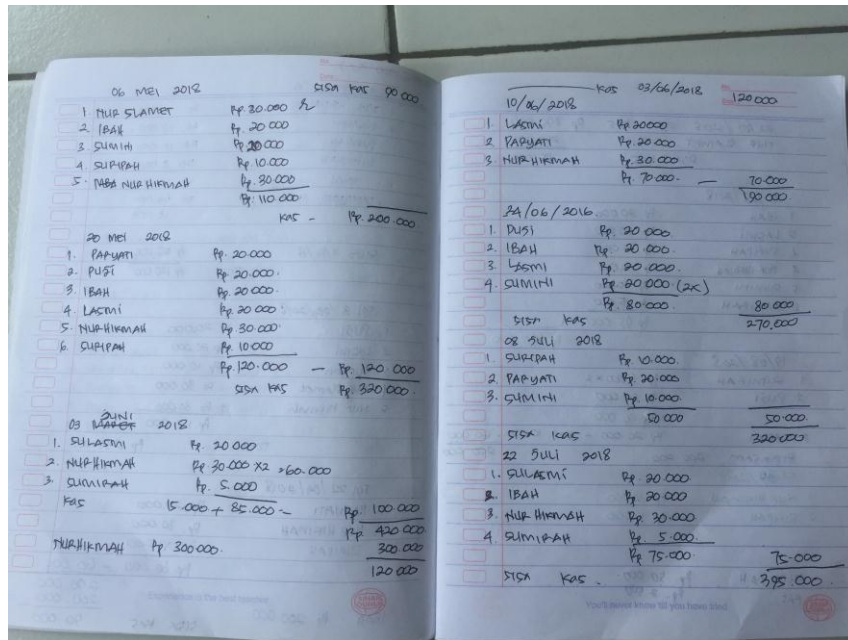 06 MEI 2018 SISA KAS 90 000
1 NUR SLAMET Rp. 30.000
2 IBAH Rp. 20 000
3 SUMINI Rp 20 000
4 SURIPAH Rp. 10.000
5. NUR HIKMAH Rp. 30.000
Rp. 110.000
KAS - Rp. 200.000
20 MEI 2018
1. PARYATI Rp. 20.000
2. PUSI Rp. 20.000.
3. IBAH Rp. 20.000
4. LASMI Rp. 20 000
5. NUR HIKMAH Rp. 30 000.
6. SURIPAH Rp. 10.000
Rp. 120.000 - Rp. 120.000
SISA KAS Rp. 320.000
JUNI
03 MARET 2018
1. SULASMI Rp. 20 000
2. NUR HIKMAH Rp 30.000 x2 =60.000
3. SUMIRAH Rp. 5.000
KAS 15.000 + 85.000 - Rp. 100 000
Rp. 420.000
NUR HIKMAH Rp 300 000. 300.000
120 000
Expression is the best teacher
KAS 03/06/2018 120 000
10/06/2018
1. LASMI Rp 20000
2 PARYATI Rp. 20.000
3 NUR HIKMAH Rp. 30.000
Rp. 70.000 - 70.000
190 000
24/06/2016
1. PUSI Rp. 20 000
2. IBAH Rp. 20.000.
3. LASMI Rp. 20.000.
4. SUMINI Rp. 20 000 (2x)
Rp. 80.000. 80 000
SISA KAS 270,000
08 JULI 2018
1. SURIPAH Rp. 10.000.
2. PARYATI Rp. 20.000
3. SUMINI Rp. 10.000.
50 000 50.000.
SISA KAS 320.000
22 JULI 2018
1. SULASMI Rp. 20 000
2. IBAH Rp 20 000
3. NUR HIKMAH Rp. 30.000
4 SUMIRAH Rp. 5.000
Rp 75.000. 75.000
SISA KAS. 395.000
You'll never know till you have tried